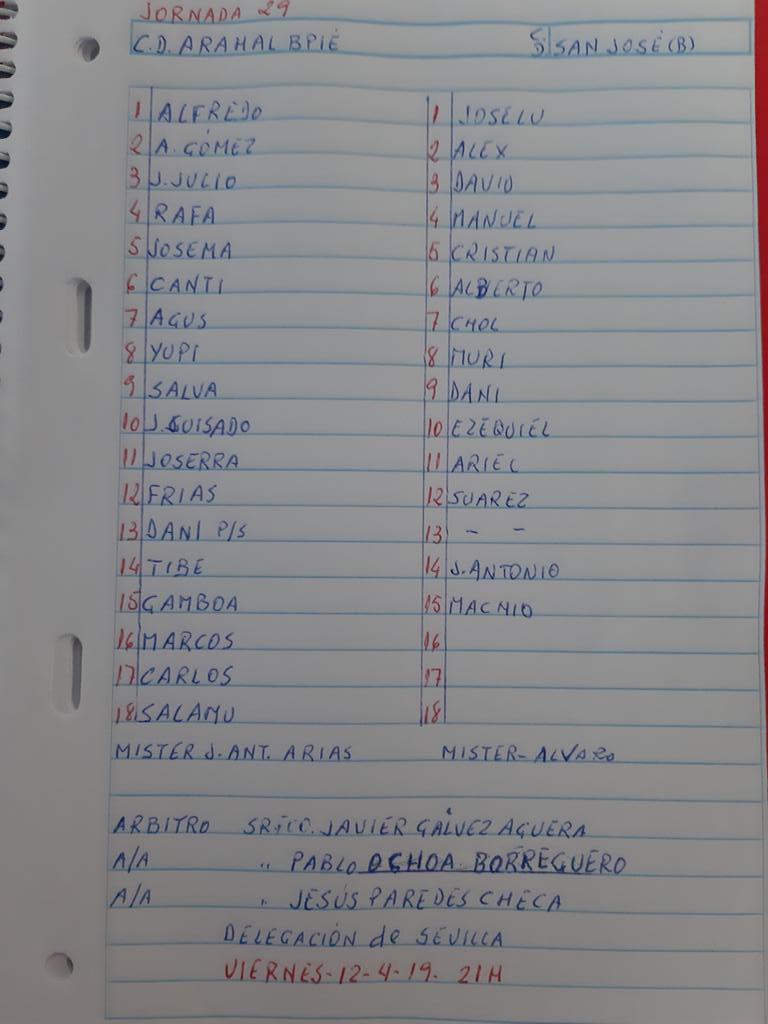 JORNADA 29
C.D. ARAHAL BPIÉ SAN JOSÉ (B)
1 ALFREDO 1 JOSELU
2 A. GÓMEZ 2 ALEX
3 J. JULIO 3 DAVID
4 RAFA 4 MANUEL
5 JOSEMA 5 CRISTIAN
6 CANTI 6 ALBERTO
7 AGUS 7 CHOL
8 YUPI 8 MURI
9 SALVA 9 DANI
10 J. GUISADO 10 EZEQUIEL
11 JOSERRA 11 ARIEL
12 FRIAS 12 SUAREZ
13 DANI P/S 13 - -
14 TIBE 14 J. ANTONIO
15 GAMBOA 15 MACNIO
16 MARCOS 16
17 CARLOS 17
18 SALAMU 18
MISTER J. ANT. ARIAS MISTER- ALVARO
ARBITRO JAVIER GÁLVEZ AGUERA
A/A " PABLO OCHOA BORREGUERO
A/A " JESÚS PAREDES CHECA
DELEGACIÓN de SEVILLA
VIERNES-12-4-19. 21H